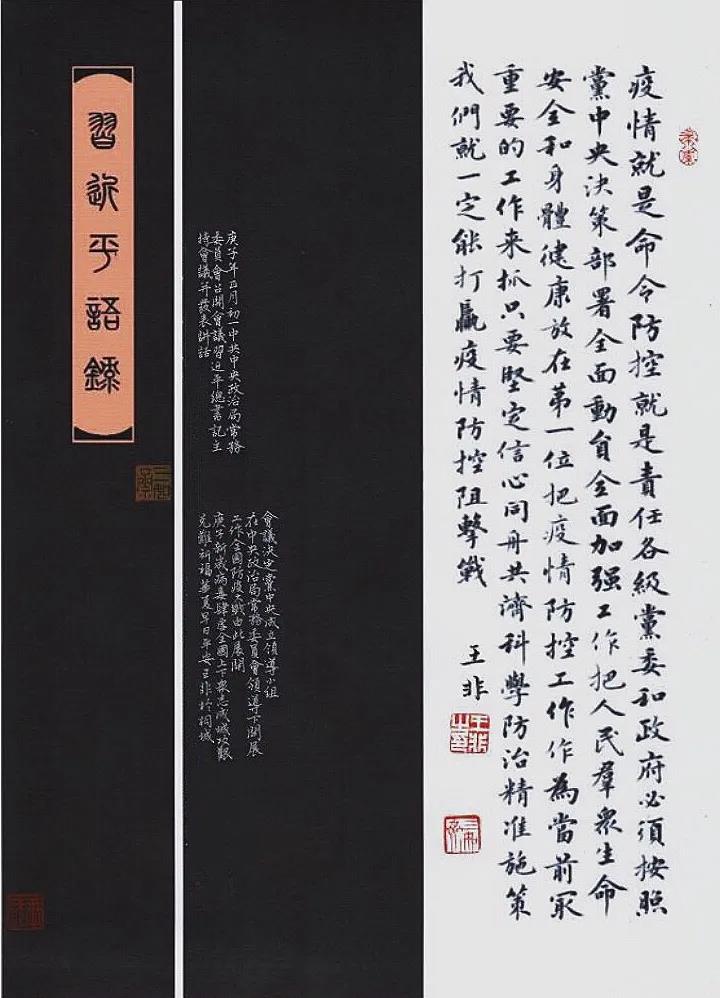 習近平語錄
疫情就是命令防控就是責任各級黨委和政府必須按照
黨中央決策部署全面動員全面加强工作把人民羣衆生命
安全和身體健康放在第一位把疫情防控工作作為當前冣
重要的工作来抓只要堅定信心同舟共濟科學防治精准施策
我們就一定能打贏疫情防控阻擊戰
王非
庚子年正月初一中共中央政治局常務
委員會召開會議習近平總書記主
持會議并發表講話
會議決定黨中央成立領導小組
在中央政治局常務委員會領導下開展
工作全國防疫之戰由此展開
庚子新歲病毒肆虐全國上下衆志成城攻艱
克難祈福華夏早日平安王非於桐城